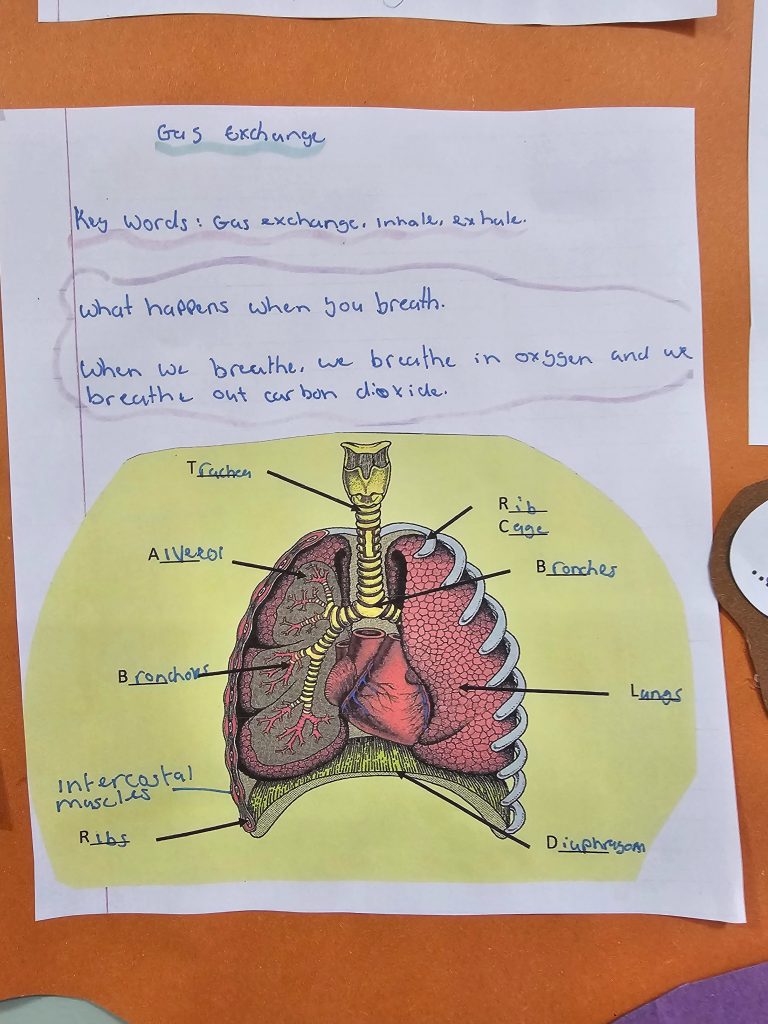 Gas exchange
Key Words: Gas exchange, inhale, exhale.
What happens when you breath.
When we breathe, we breathe in oxygen and we
breathe out carbon dioxide.
Trachea
Rib
Cage
Alveoli
Bronches
Lungs
Intercostal
muscles
Ribs
Diaphragm